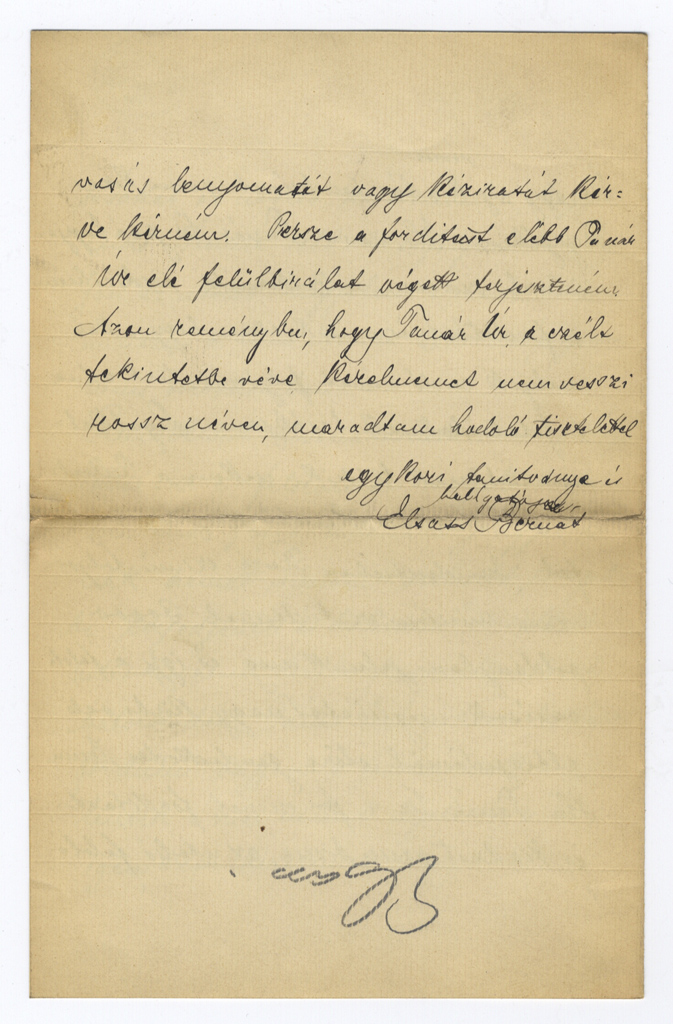 vasás lenyomatát vagy kéziratát kér=
ve kérném. Persze a forditást előbb Tanár
Úr elé felülbirálat végett terjeszteném.
Azon reményben, hogy Tanár Úr, a czélt
tekintetbe véve kérelmemet nem veszi
rossz néven, maradtam hodoló tisztelettel
egykori tanitványa és
hallgatója
Elsass Bernát